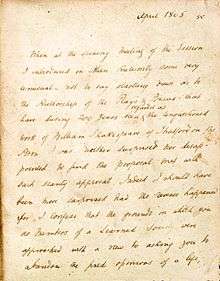 April 1805
When at the evening Meeting of the Session
I introduced some very
unusual, not to say startling views as to
the Authorship of the Plays & Poems that
regarded as
have during 200 years the unquestioned
work of William Shakespeare of Stratford on the
Avon I was neither surprised nor disap-
pointed to find the proposal met with
such scanty approval. Indeed, I should have
been more surprised had the reverse happened
for I confess that the grounds on which you
as members of a Learned Society were
approached with a view to asking you to
abandon the fixed opinions of a life,